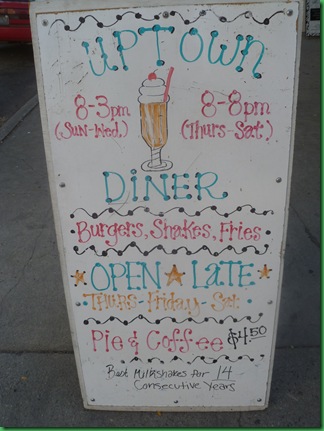 UPTOWN
8-3pm 8-8pm
(Sun-Wed.) (Thurs-Sat.)
DINER
Burgers, Shakes, Fries
OPEN LATE
Thurs-Friday-Sat.
Pie & Coffee $4.50
Best Milkshakes for 14
Consecutive Years